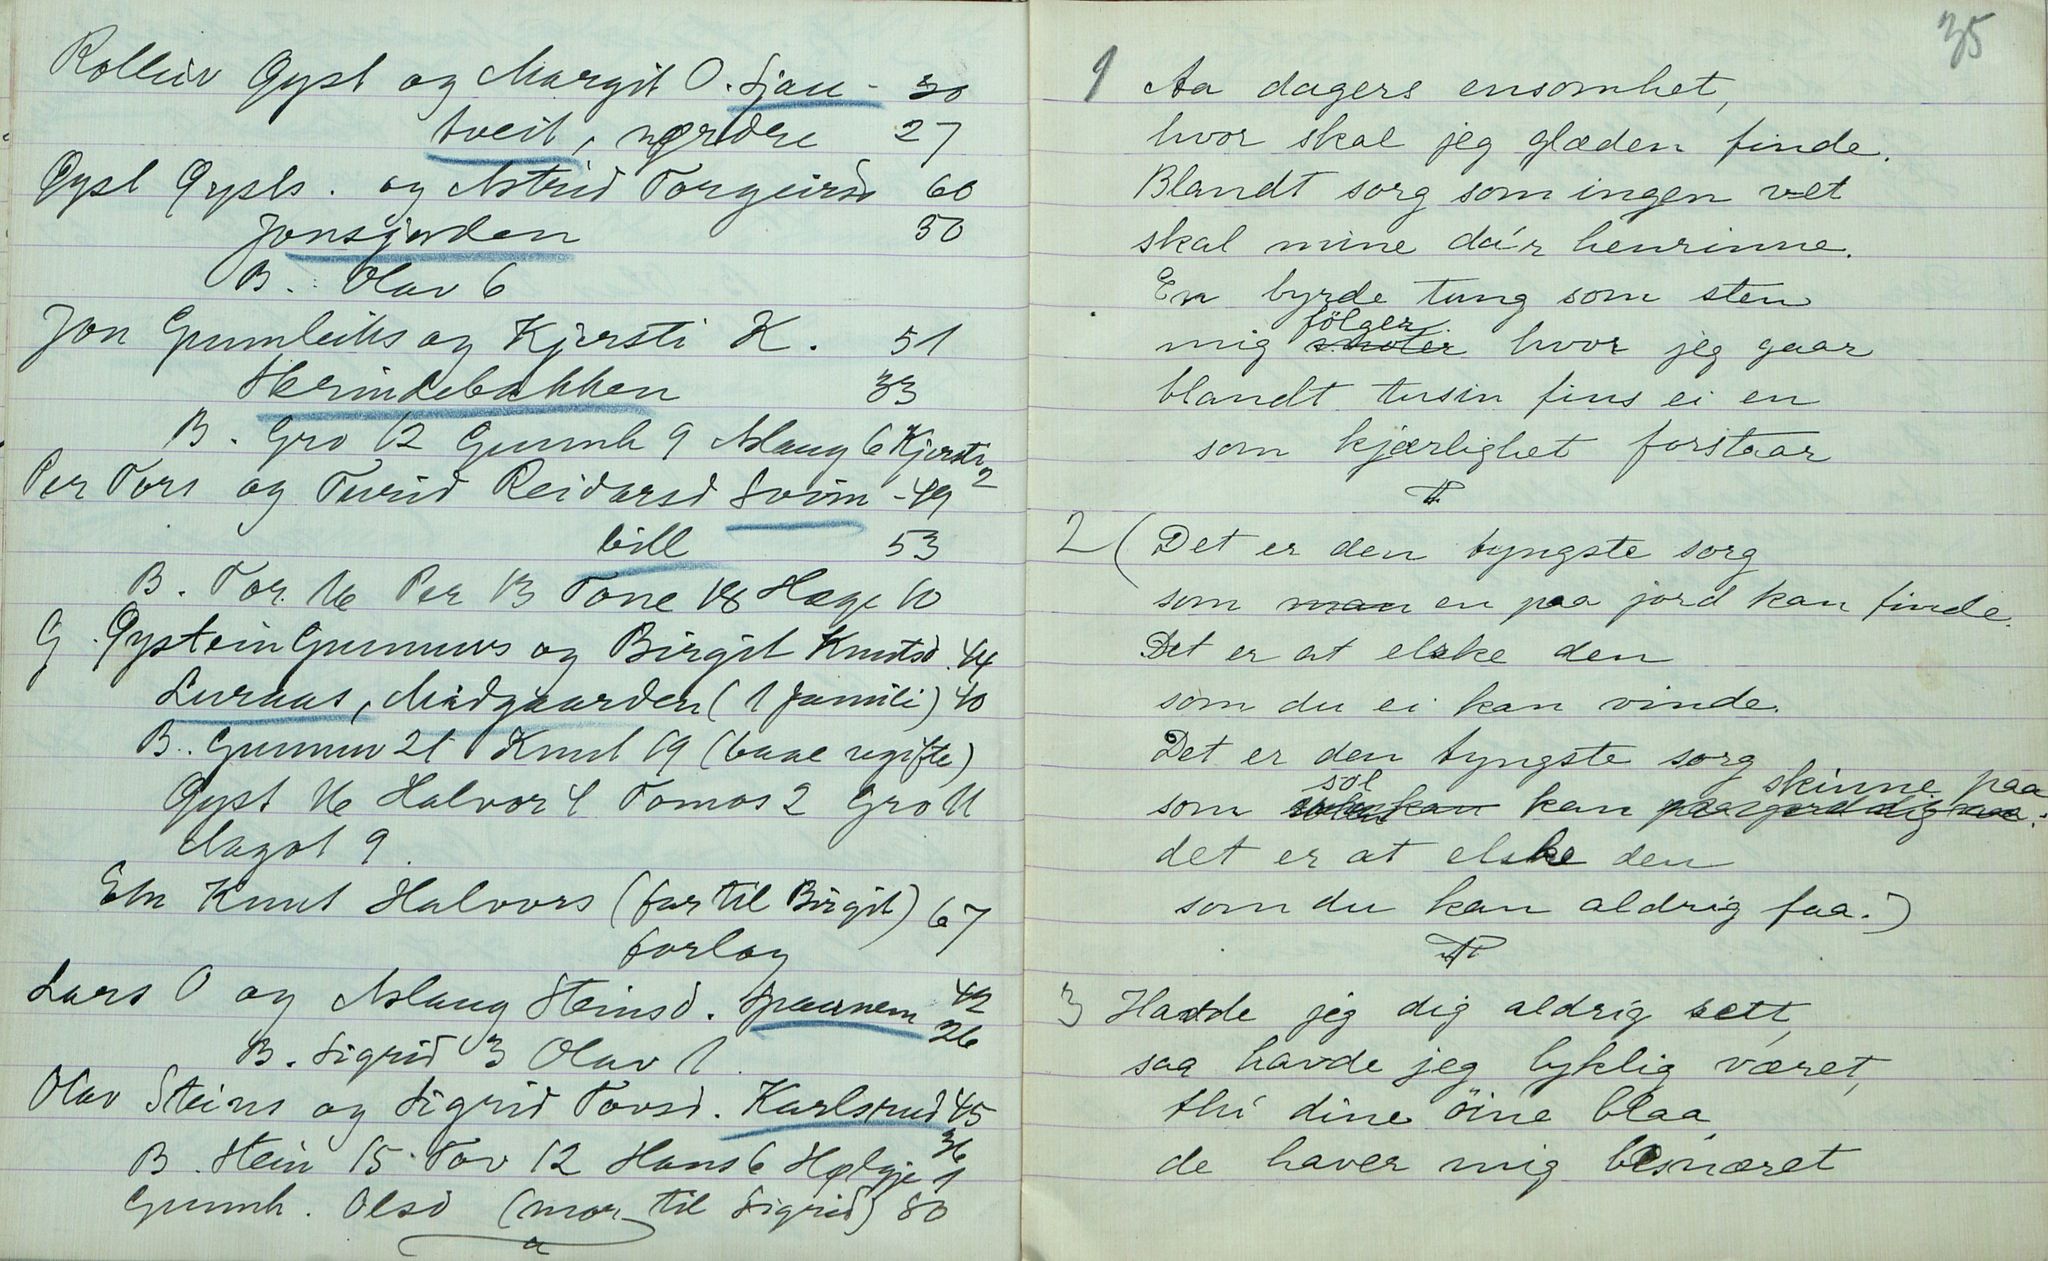 Rolleiv Øyst og Margit O. Sjau- 30
tveit, nørdre 27
Øyst Øysts. og Astrid Torgeirsd 60
Jonsjorden 50
B. Olav 6
Jon Gunnleiks og Kjersti K. 51
Herindebakken 33
B. Gro 12 Gunnh 9 Aslaug 6 Kjersti 2
Per Tors og Turid Reidarsd Svim- 49
bill 53
B. Tor 16 Per 13 Tone 18 Hæge 10
G. Øystein Gunnuvs og Birgit Knutsd. 44
Luraas, Midgaarden (1 famili) 40
B. Gunnuv 21 Knut 19 (baae ugifte)
Øyst 16 Halvor 4 Tomos 2 Gro 11
Dagot 9.
Ekm Knut Halvors (far til Birgit) 67
forlag
Lars O og Aslaug Steinsd. Spaanem 42
26
B. Sigrid 3 Olav 1.
Olav Steins og Sigrid Tovsd. Karlsrud 45
36
B. Stein 15 Tov 12 Hans 6 Hølgje 1
Gunnh. Olsd (mor til Sigrid) 80
35
1 Aa dagers ensomhet,
hvor skal jeg glæden finde.
Blandt sorg som ingen vet
skal mine da'r henrinne.
En byrde tung som sten
følger
mig hvor jeg gaar
blandt tusin fins ei en
som kjærlighet forstaar
2 (Det er den tyngste sorg
som man en paa jord kan finde.
Det er at elske den
som du ei kan vinde.
Det er den tyngste sorg
sol skinne paa
som solen kan kan
det er at elske den
som du kan aldrig faa.)
3 Hadde jeg dig aldrig sett,
saa havde jeg lyklig været,
thi dine öine blaa,
de haver mig besnæret